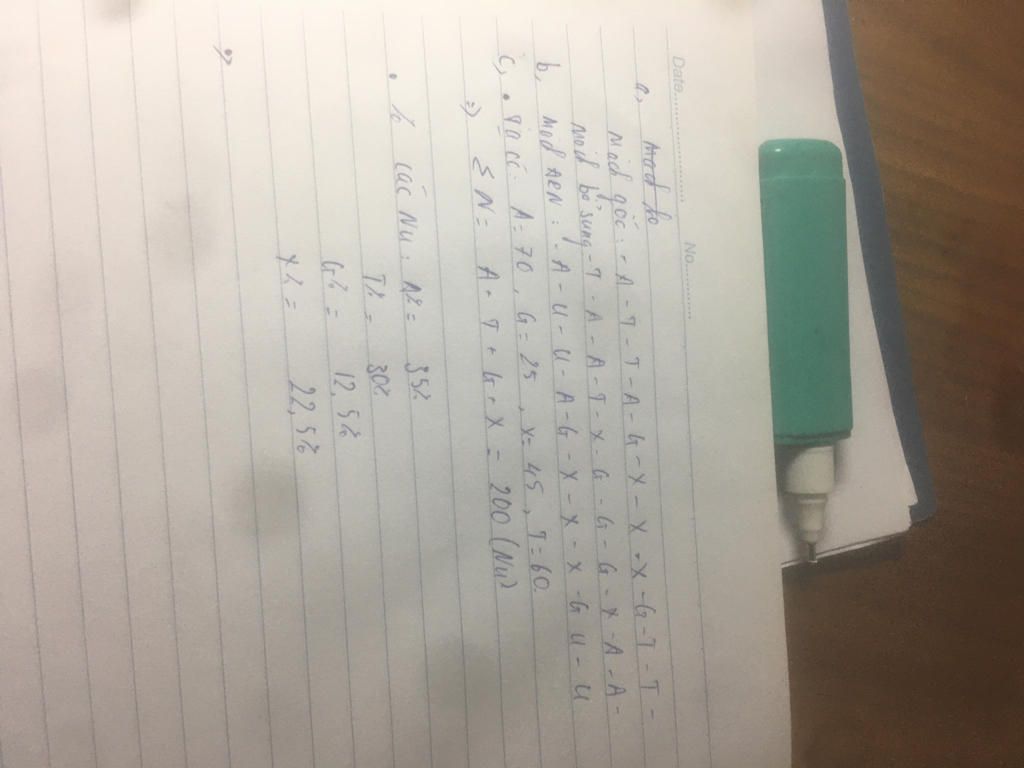 Date.................... No...............
a,
Mạch gốc: - A - T - T - A - G - X - X - X - G - T - T -
Mạch bổ sung - T - A - A - T - X - G - G - G - X - A - A -
b, Mạch ARN : - A - U - U - A - G - X - X - X - G U - U
c, • Ta có: A = 70, G = 25, X = 45, T = 60.
=> Σ N = A + T + G + X = 200 (Nu)
• % các Nu: A% = 35%
T% = 30%
G% = 12,5%
X% = 22,5%